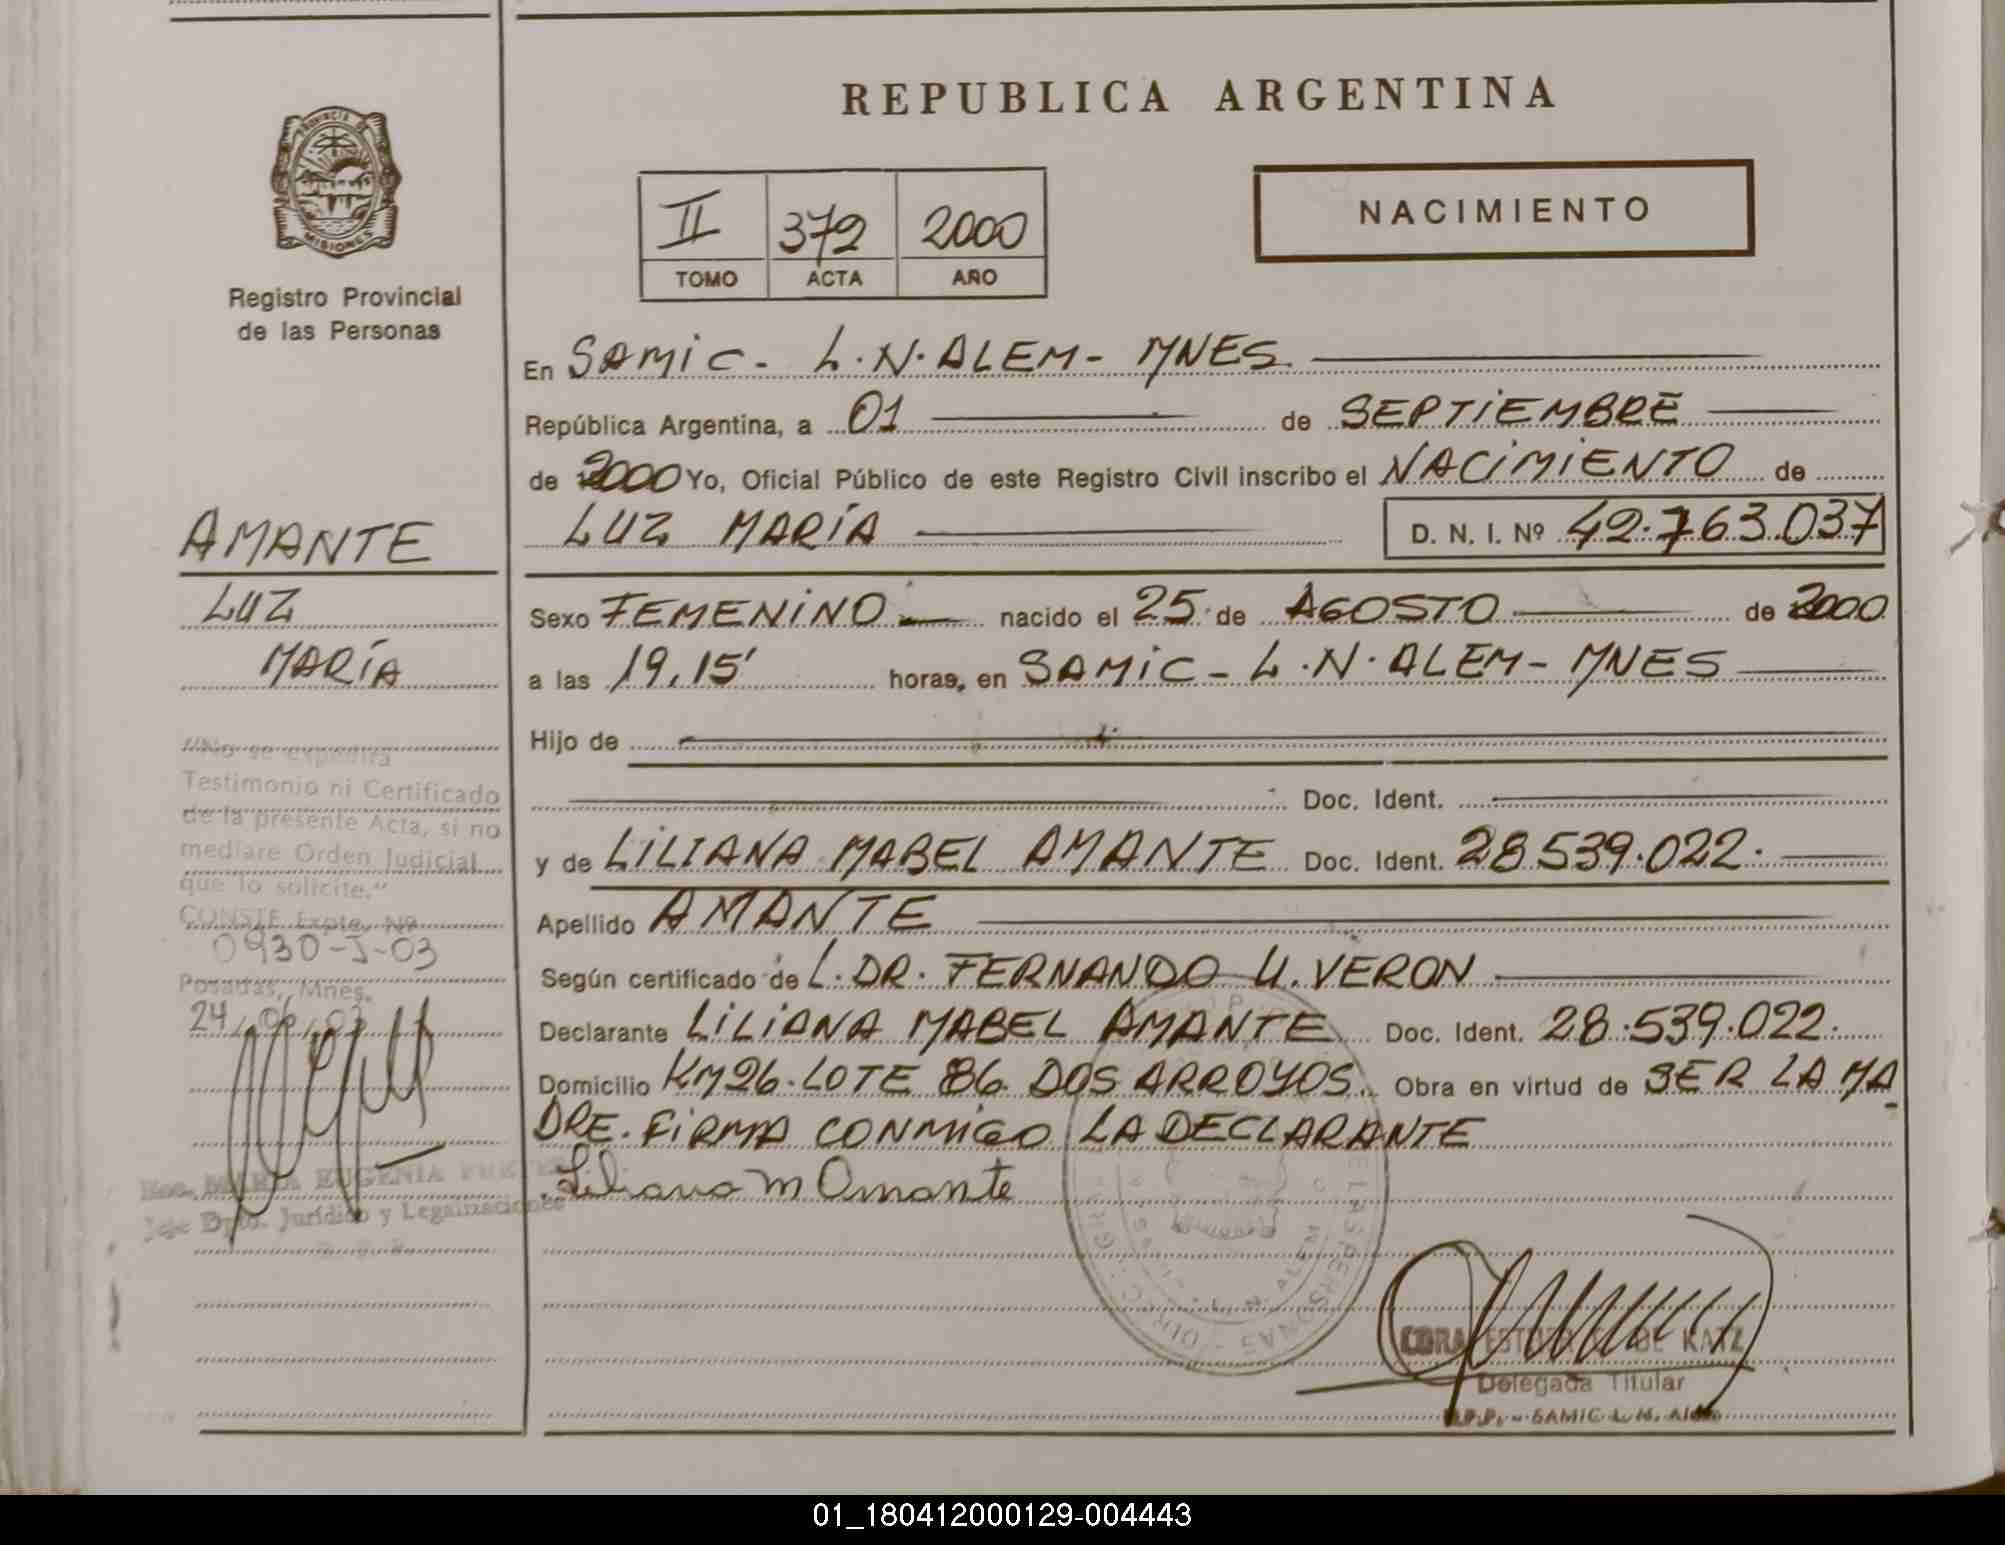 REPUBLICA ARGENTINA
PROVINCIA DE
MISIONES
Registro Provincial
de las Personas
II 372 2000
TOMO ACTA AÑO
NACIMIENTO
En SAMIC - L.N. ALEM - MNES.
República Argentina, a 01 de SEPTIEMBRE
de 2000 Yo, Oficial Público de este Registro Civil inscribo el NACIMIENTO de
LUZ MARÍA D. N. I. Nº 42.763.037
Sexo FEMENINO nacido el 25 de AGOSTO de 2000
a las 19,15' horas, en SAMIC - L.N. ALEM - MNES
Hijo de
Doc. Ident.
y de LILIANA MABEL AMANTE Doc. Ident. 28.539.022.
Apellido AMANTE
Según certificado de L. DR. FERNANDO U. VERON
Declarante LILIANA MABEL AMANTE Doc. Ident. 28.539.022.
Domicilio KM 26. LOTE 86. DOS ARROYOS. Obra en virtud de SER LA MA
DRE. FIRMA CONMIGO LA DECLARANTE
Liliana M Amante
DE KATZ
Delegada Titular
R.P.P. - SAMIC L.N. Alem
AMANTE
LUZ
MARÍA
"No se expedirá
Testimonio ni Certificado
de la presente Acta, si no
mediare Orden Judicial
que lo solicite."
CONSTE Expte. Nº
0930-J-03
Posadas, Mnes.
24
MARIA EUGENIA
Jefe Dpto. Jurídico y Legalizaciones
L. N. ALEM
01_180412000129-004443